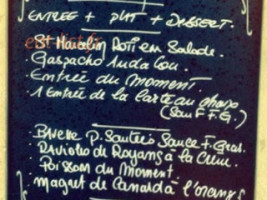 ENTRÉE + PLAT + DESSERT.
St Marcelin Roti en Salade.
. Gaspacho Andalou.
. Entrée du Moment.
. 1 Entrée de la Carte au choix
(Sauf F.F.G.)
. Bavette P. Sautées Sauce F. Gras.
. Ravioles de Royans à la Crème.
. Poisson du Moment.
. magret de Canard à l'orange